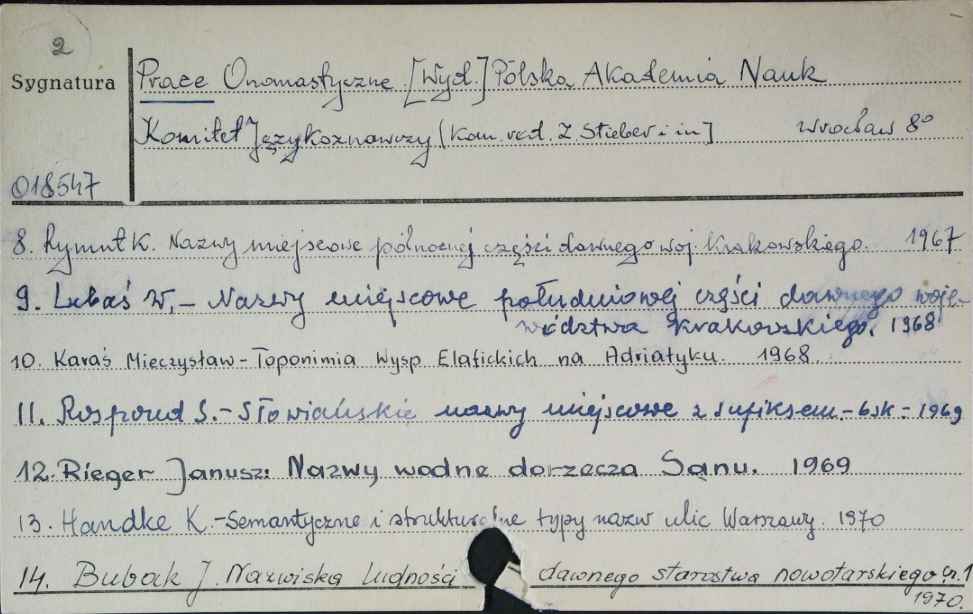 2
Sygnatura
Prace Onomastyczne. [Wyd.] Polska Akademia Nauk
Komitet Językoznawczy (Kom. red. Z Stieber i in]
Wrocław 8°
018547
8. Rymut K. Nazwy miejscowe północnej części dawnego woj. Krakowskiego. 1967
9. Lubaś W, - Nazwy miejscowe południowej części dawnego woje-
wództwa krakowskiego. 1968
10. Karaś Mieczysław - Toponimia Wysp Elafickich na Adriatyku. 1968.
11. Rospond S. - Słowiańskie nazwy miejscowe z sufiksem -ьsk- 1969
12. Rieger Janusz: Nazwy wodne dorzecza Sanu. 1969
13. Handke K. - Semantyczne i strukturalne typy nazw ulic Warszawy. 1970
14. Bubak J. Nazwiska ludności dawnego starostwa nowotarskiego cz. 1
1970